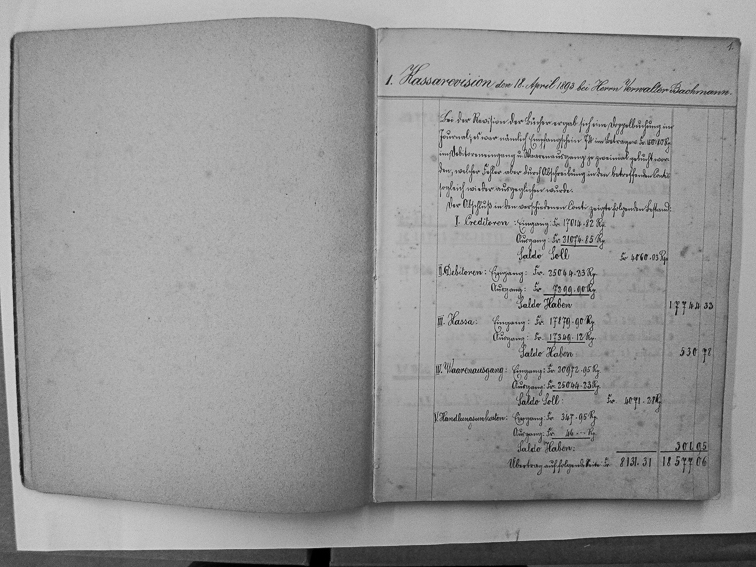 1.
1. Kassarevision den 18. April 1893 bei Herrn Verwalter Bachmann.
Bei der Revision der Bücher ergab sich eine Doppelbuchung im
Journal, es war nämlich Empfangschein im Betrage von Fr. Rp.
im Debitoreneingang u. Waarenausgang je zweimal gebucht wor-
den, welcher Fehler aber durch Abschreibung in den betreffenden Conti
sogleich wieder ausgeglichen wurde.
Der Abschluß in den verschiedenen Conti zeigte folgenden Bestand:
I. Creditoren: Eingang: Fr. 17014.82 Rp.
Ausgang: Fr. 21074.85 Rp.
Saldo Soll Fr. 4060.03 Rp.
II. Debitoren: Eingang: Fr. 25044.23 Rp.
Ausgang: Fr. 7299.90 Rp.
Saldo Haben 17744 33
III. Kassa: Eingang: Fr. 17879.90 Rp.
Ausgang: Fr. 17349.12 Rp.
Saldo Haben 530 78
IV. Waarenausgang: Eingang: Fr. 20972.95 Rp.
Ausgang: Fr. 25044.23 Rp.
Saldo Soll: Fr. 4071.28 Rp.
V. Handlungsunkosten: Eingang: Fr. 347.95 Rp.
Ausgang: Fr. 46.-- Rp.
Saldo Haben: 301.95
Übertrag auf folgende Seite Fr. 8131.31 18577 06